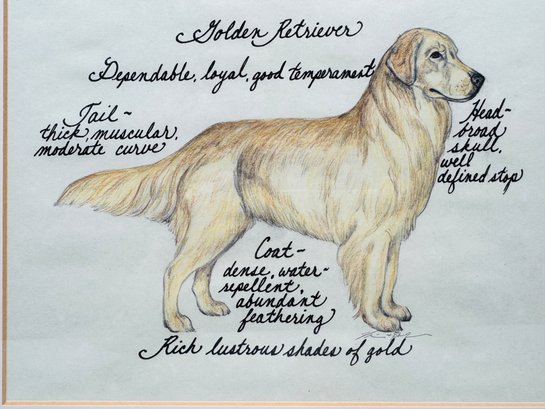 Golden Retriever
Dependable, loyal, good temperament
Tail~
thick, muscular,
moderate curve
Head~
broad
skull,
well
defined stop
Coat~
dense, water-
repellent,
abundant
feathering
Rich lustrous shades of gold